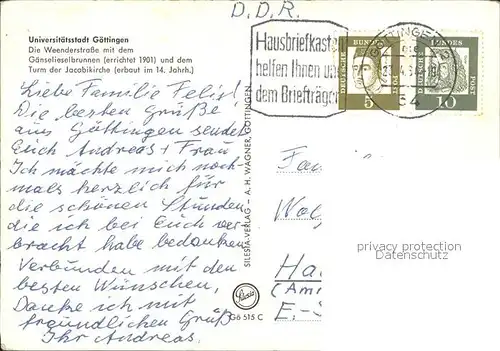 D.D.R.
Universitätsstadt Göttingen
Die Weenderstraße mit dem
Gänselieselbrunnen (errichtet 1901) und dem
Turm der Jacobikirche (erbaut im 14. Jahrh.)
Hausbriefkasten
helfen Ihnen und
dem Briefträger
GÖTTINGEN
DEUTSCHE BUNDESPOST
5
DEUTSCHE BUNDESPOST
10
Liebe Familie Felis!
Die besten Grüße
aus Göttingen sendet
Euch Andreas + Frau
Ich möchte mich noch-
mals herzlich für
die schönen Stunden,
die ich bei Euch ver-
bracht habe bedanken.
Verbunden mit den
besten Wünschen,
Danke ich mit
freundlichen Grüß
Ihr Andreas.
SILESIA-VERLAG - A. H. WAGNER, GÖTTINGEN
Gö 515 C
Fam
Wol
Ha
(Am
E.-S
privacy protection
Datenschutz